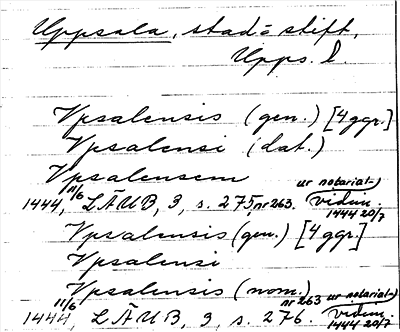 Uppsala, stad o stift,
Upps. l.
Vpsalensis (gen.) [4 ggr.]
Vpsalensi (dat.)
Vpsalensem
1444 11/6, LÄUB, 3, s. 275, nr 263. ur notariat- vidim. 1444 20/7
Vpsalensis (gen.) [4 ggr.]
Vpsalensi
Vpsalensis (nom.)
1444 11/6, LÄUB, 3, s. 276. nr 263 ur notariat- vidim. 1444 20/7